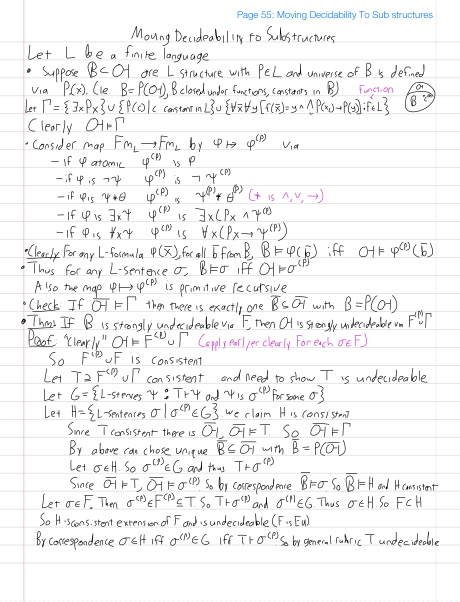 Page 55: Moving Decidability To Sub structures
Moving Decideability to Substructures
Let L be a finite language
• Suppose B ⊆ 𝒪 are L structure with P∈L and universe of B is defined
via P(x). (ie B = P(𝒪), B closed under functions, constants in B) Function
Let Γ = {∃x Px} ∪ {P(c) | c constant in L} ∪ {∀x̄∀y[f(x̄)=y ∧ ⋀P(xᵢ) → P(y)] : f∈L}
Clearly 𝒪⊨Γ
• Consider map Fm_L → Fm_L by φ ↦ φ^(P) via
– if φ atomic φ^(P) is φ
– if φ is ¬ψ φ^(P) is ¬ψ^(P)
– if φ is ψ*θ φ^(P) is ψ^(P) * θ^(P) (* is ∧, ∨, →)
– if φ is ∃xψ φ^(P) is ∃x(Px ∧ ψ^(P))
– if φ is ∀xψ φ^(P) is ∀x(Px → ψ^(P))
• Clearly For any L-formula φ(x̄), for all b̄ from B, B⊨φ(b̄) iff 𝒪⊨φ^(P)(b̄)
• Thus for any L-sentence σ, B⊨σ iff 𝒪⊨σ^(P)
Also the map φ↦φ^(P) is primitive recursive
• Check: If 𝒪̄⊨Γ then there is exactly one B̄⊆𝒪̄ with B̄=P(𝒪̄)
• Thm: If B is strongly undecideable via F, then 𝒪 is strongly undecideable via F^(P)∪Γ
Proof: "Clearly" 𝒪⊨F^(P)∪Γ (apply earlier clearly for each σ∈F)
So F^(P)∪Γ is consistent
Let T⊇F^(P)∪Γ consistent and need to show T is undecideable
Let G={L-stences ψ : T⊢ψ and ψ is σ^(P) for some σ}
Let H={L-sentences σ | σ^(P)∈G}. We claim H is consistent
Since T consistent there is 𝒪̄, 𝒪̄⊨T. So 𝒪̄⊨Γ
By above can chose unique B̄⊆𝒪̄ with B̄=P(𝒪̄)
Let σ∈H. So σ^(P)∈G and thus T⊢σ^(P)
Since 𝒪̄⊨T, 𝒪̄⊨σ^(P) So by correspondence B̄⊨σ So B̄⊨H and H consistent
Let σ∈F. Then σ^(P)∈F^(P)⊆T. So T⊢σ^(P) and σ^(P)∈G Thus σ∈H. So F⊂H
So H is consistent extension of F and is undecideable (F is EU)
By correspondence σ∈H iff σ^(P)∈G iff T⊢σ^(P). So by general rubric T undecideable